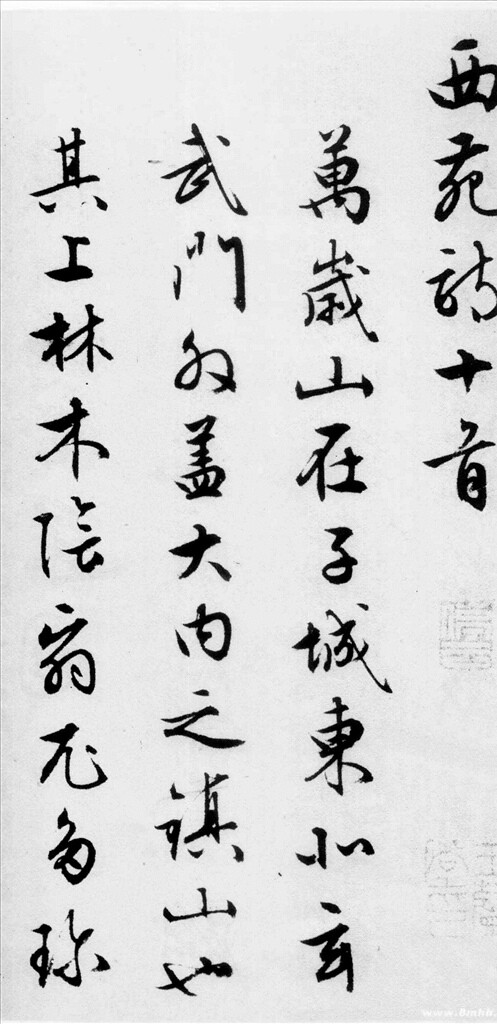 西苑詩十首
萬歲山在子城東北玄
武門外蓋大內之鎮山也
其上林木陰翳尤多珍
www.8mhh.